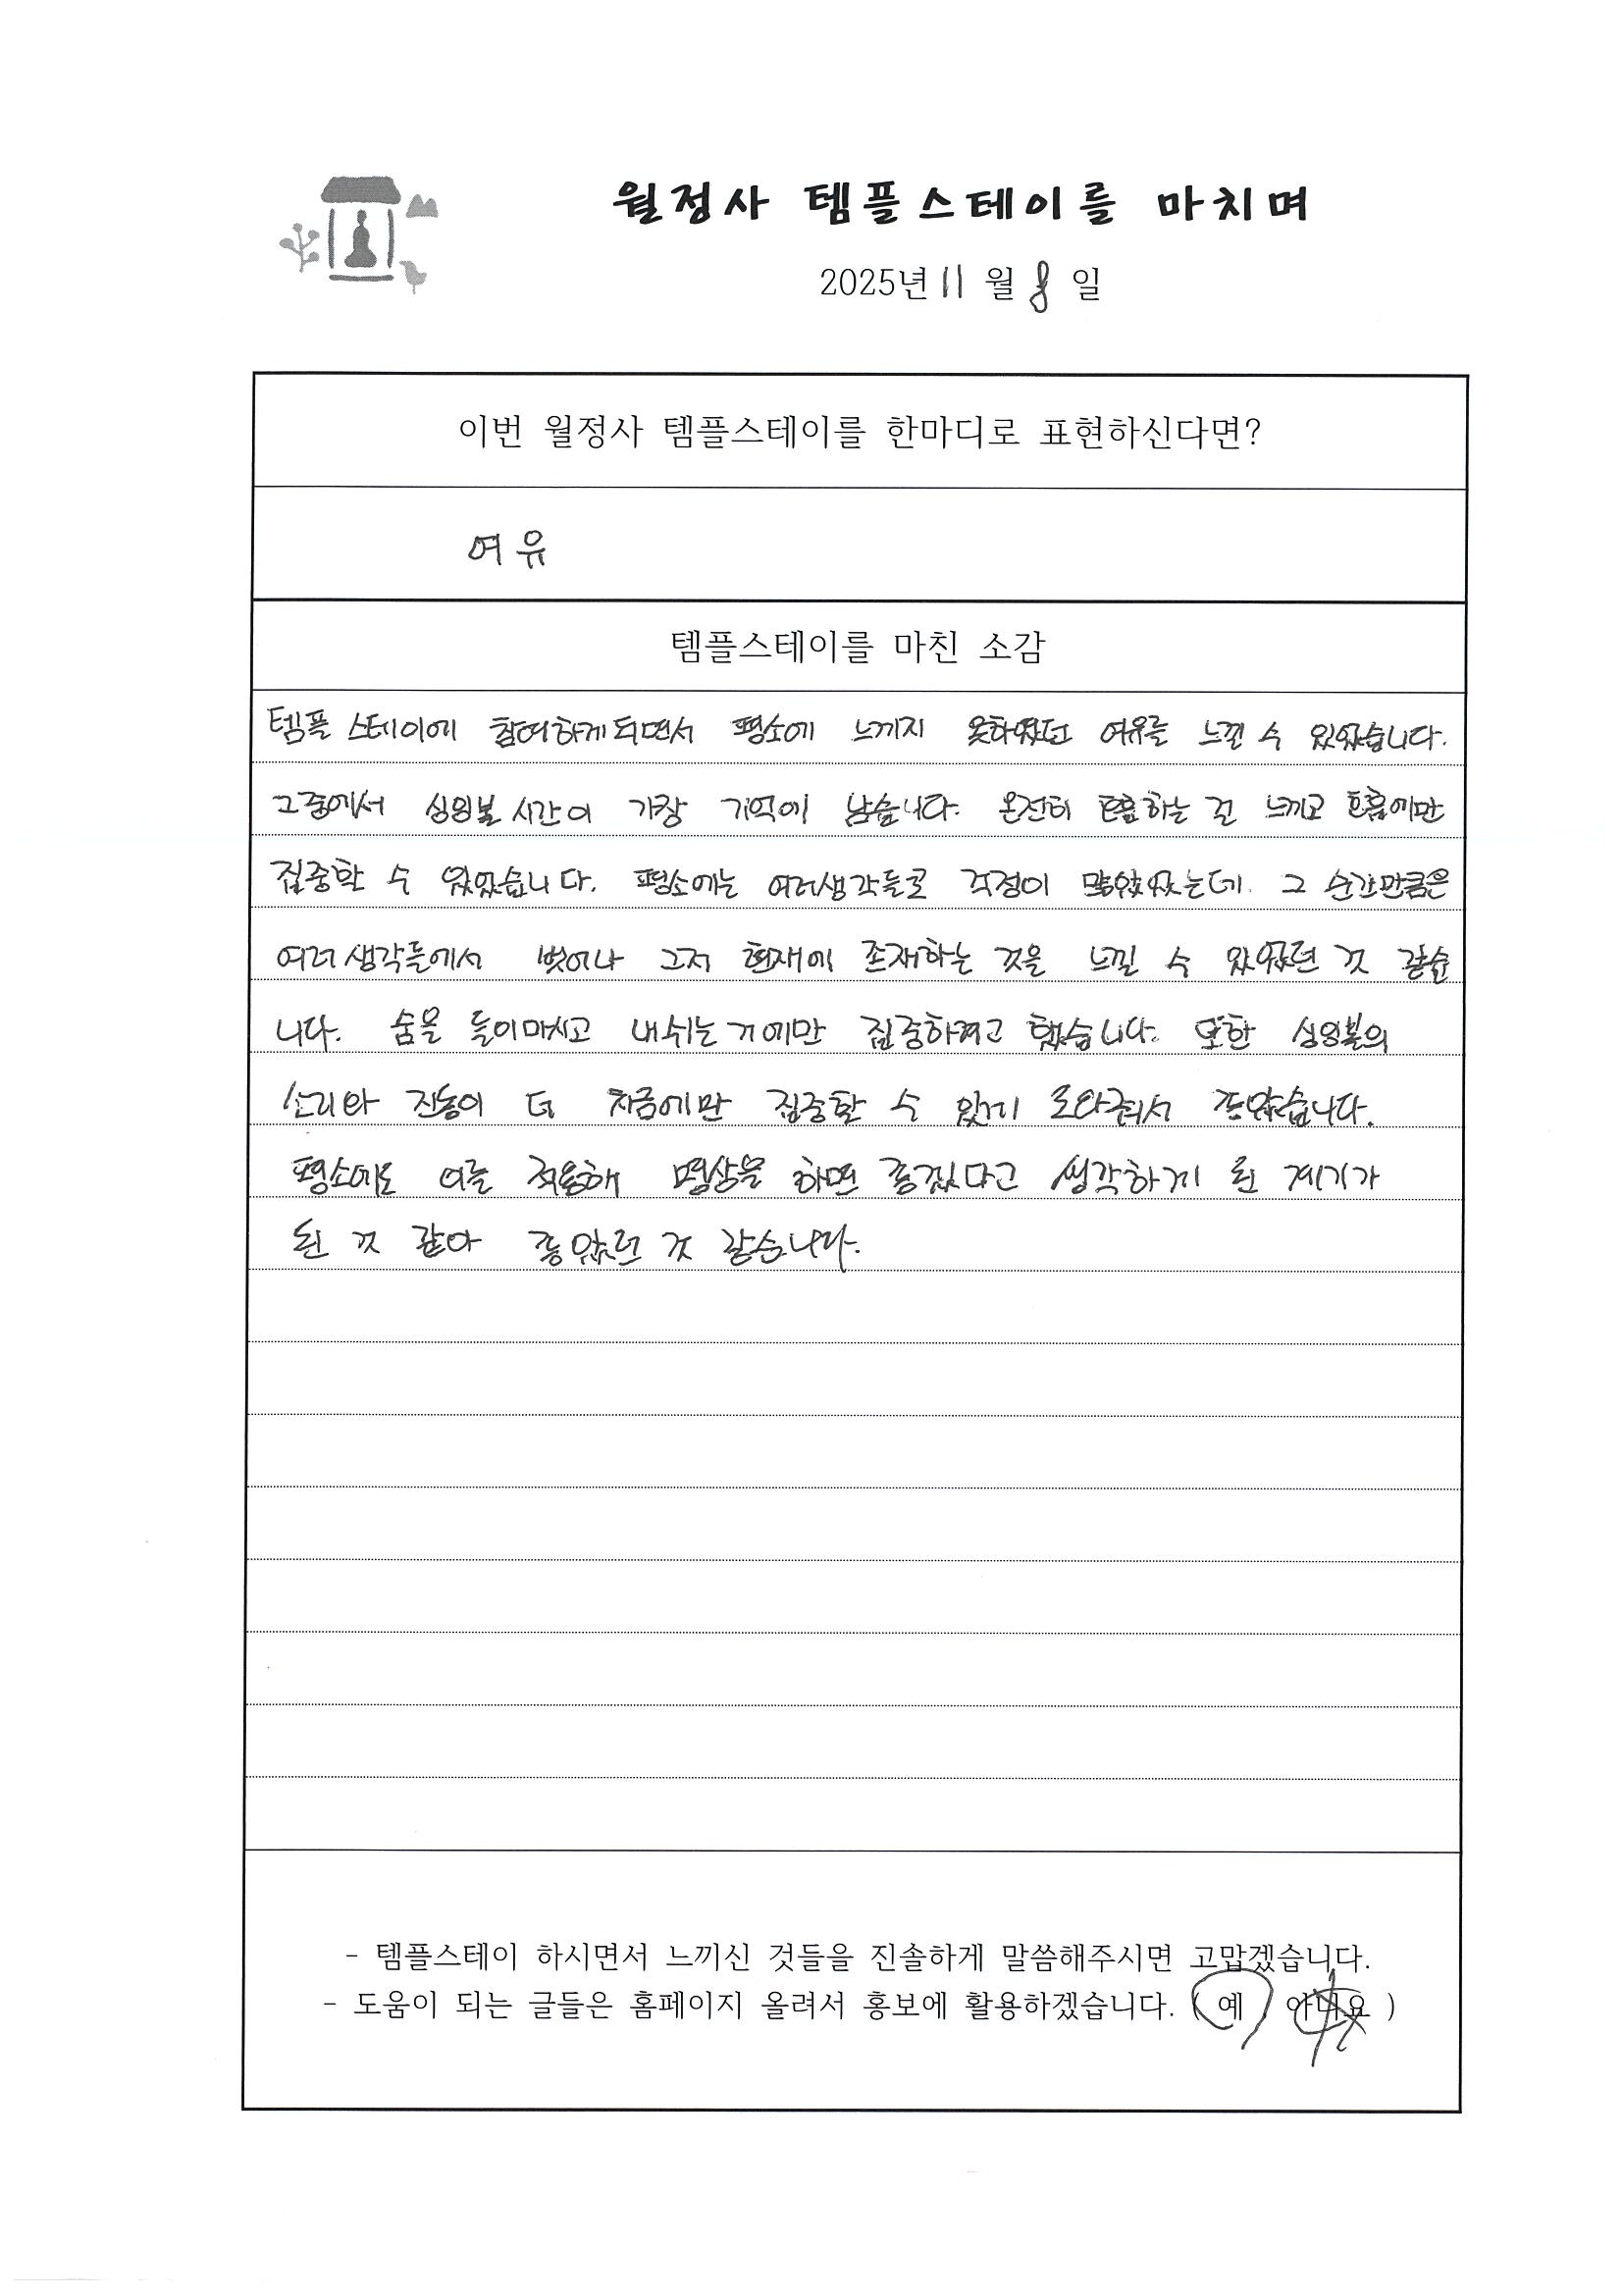 월정사 템플스테이를 마치며
2025년 11 월 8 일
이번 월정사 템플스테이를 한마디로 표현하신다면?
여유
템플스테이를 마친 소감
템플 스테이에 참여하게되면서 평소에 느끼지 못하였던 여유를 느낄 수 있었습니다.
그중에서 싱잉볼 시간이 가장 기억에 남습니다. 온전히 호흡하는 걸 느끼고 호흡에만
집중할 수 있었습니다. 평소에는 여러생각들로 걱정이 많았었는데. 그 순간만큼은
여러 생각들에서 벗어나 그저 현재에 존재하는 것을 느낄 수 있었던 것 같습
니다. 숨을 들이마시고 내쉬는 거에만 집중하려고 했습니다. 또한 싱잉볼의
소리와 진동이 더 지금에만 집중할 수 있게 도와줘서 좋았습니다.
평소에도 이를 적용해 명상을 하면 좋겠다고 생각하게 된 계기가
된 것 같아 좋았던 것 같습니다.
- 템플스테이 하시면서 느끼신 것들을 진솔하게 말씀해주시면 고맙겠습니다.
- 도움이 되는 글들은 홈페이지 올려서 홍보에 활용하겠습니다. ( 예 , 아니요 )